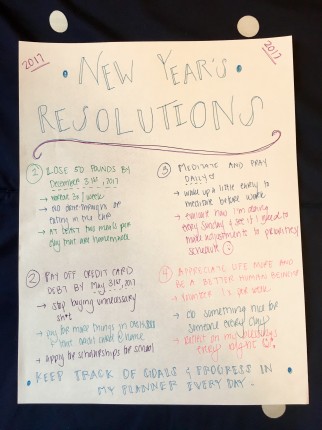 2017
2017
NEW YEAR'S
RESOLUTIONS
① LOSE 50 POUNDS BY
December 31st, 2017
→ workout 3x/week
→ no drive-through or
eating in the car
→ AT LEAST two meals per
day that are homemade
② PAY OFF CREDIT CARD
DEBT BY May 31st, 2017
→ stop buying unnecessary
sh*t
→ pay for more things in cash
+ leave credit card @ home
→ apply for scholarships for school
③ MEDITATE AND PRAY
DAILY
→ wake up a little early to
meditate before work
→ evaluate how I'm doing
every Sunday & see if I need to
make adjustments to priorities/
schedule
④ APPRECIATE LIFE MORE AND
BE A BETTER HUMAN BEING
→ volunteer 1x per week
→ do something nice for
someone every day
→ reflect on my blessings
every night
• KEEP TRACK OF GOALS & PROGRESS IN
MY PLANNER EVERY DAY •